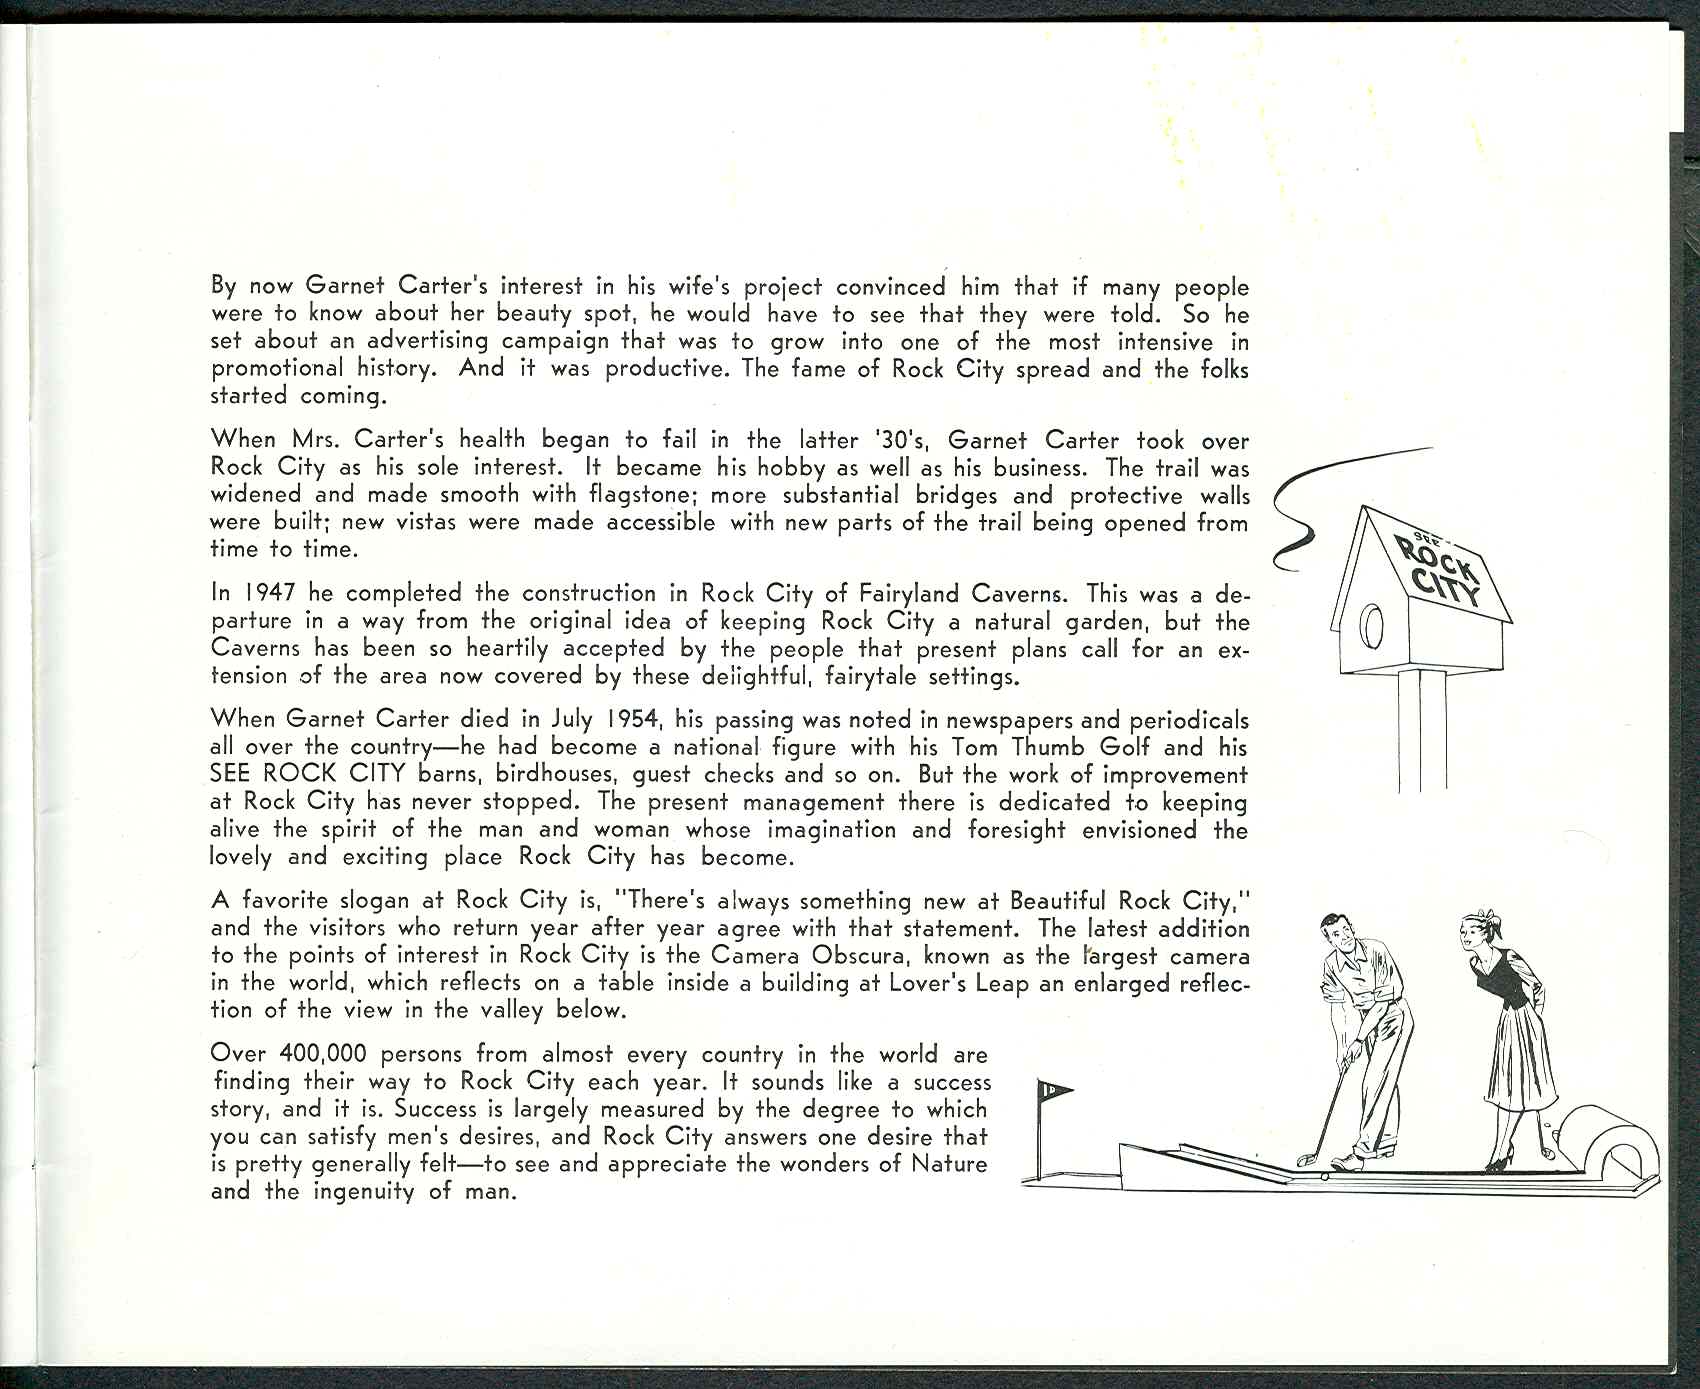 By now Garnet Carter's interest in his wife's project convinced him that if many people
were to know about her beauty spot, he would have to see that they were told. So he
set about an advertising campaign that was to grow into one of the most intensive in
promotional history. And it was productive. The fame of Rock City spread and the folks
started coming.
When Mrs. Carter's health began to fail in the latter '30's, Garnet Carter took over
Rock City as his sole interest. It became his hobby as well as his business. The trail was
widened and made smooth with flagstone; more substantial bridges and protective walls
were built; new vistas were made accessible with new parts of the trail being opened from
time to time.
In 1947 he completed the construction in Rock City of Fairyland Caverns. This was a de-
parture in a way from the original idea of keeping Rock City a natural garden, but the
Caverns has been so heartily accepted by the people that present plans call for an ex-
tension of the area now covered by these delightful, fairytale settings.
When Garnet Carter died in July 1954, his passing was noted in newspapers and periodicals
all over the country—he had become a national figure with his Tom Thumb Golf and his
SEE ROCK CITY barns, birdhouses, guest checks and so on. But the work of improvement
at Rock City has never stopped. The present management there is dedicated to keeping
alive the spirit of the man and woman whose imagination and foresight envisioned the
lovely and exciting place Rock City has become.
A favorite slogan at Rock City is, "There's always something new at Beautiful Rock City,"
and the visitors who return year after year agree with that statement. The latest addition
to the points of interest in Rock City is the Camera Obscura, known as the largest camera
in the world, which reflects on a table inside a building at Lover's Leap an enlarged reflec-
tion of the view in the valley below.
Over 400,000 persons from almost every country in the world are
finding their way to Rock City each year. It sounds like a success
story, and it is. Success is largely measured by the degree to which
you can satisfy men's desires, and Rock City answers one desire that
is pretty generally felt—to see and appreciate the wonders of Nature
and the ingenuity of man.
SEE
ROCK
CITY